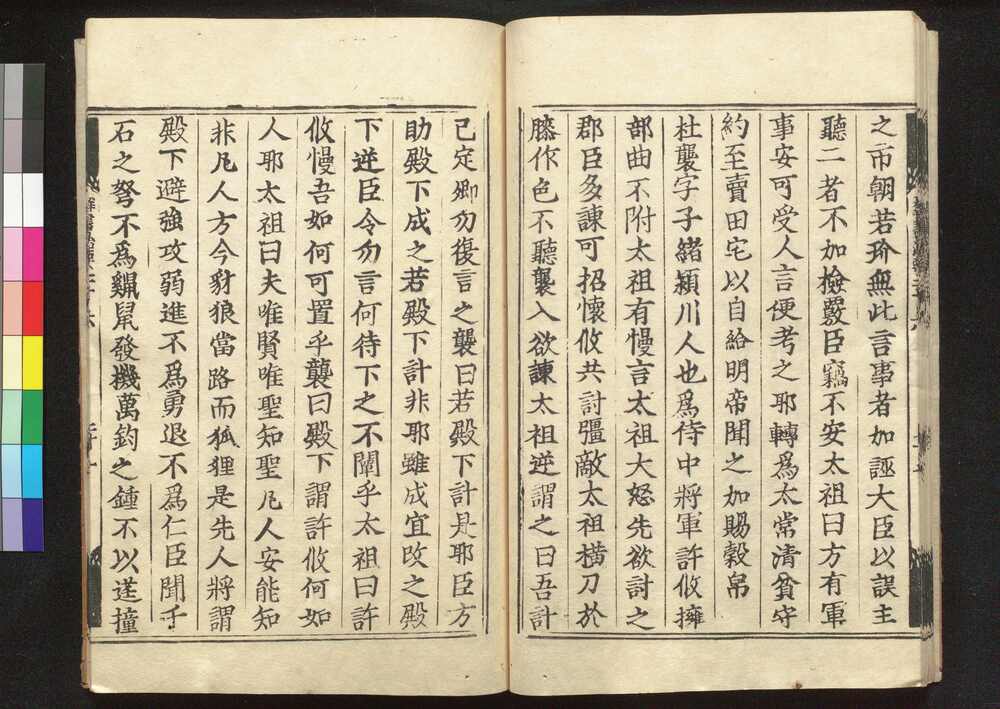 之市朝若玠無此言事者加誣大臣以誤主
聽二者不加檢覈臣竊不安太祖曰方有軍
事安可受人言便考之耶轉爲太常清貧守
約至賣田宅以自給明帝聞之加賜穀帛
杜襲字子緒潁川人也爲侍中將軍許攸擁
部曲不附太祖有慢言太祖大怒先欲討之
郡臣多諫可招懷攸共討彊敵太祖橫刀於
膝作色不聽襲入欲諫太祖逆謂之曰吾計
已定卿勿復言之襲曰若殿下計是耶臣方
助殿下成之若殿下計非耶雖成宜改之殿
下逆臣令勿言何待下之不闡乎太祖曰許
攸慢吾如何可置乎襲曰殿下謂許攸何如
人耶太祖曰夫唯賢知賢唯聖知聖凡人安能知
非凡人方今豺狼當路而狐狸是先人將謂
殿下避強攻弱進不爲勇退不爲仁臣聞千
石之弩不爲鼷鼠發機萬鈞之鍾不以莛撞